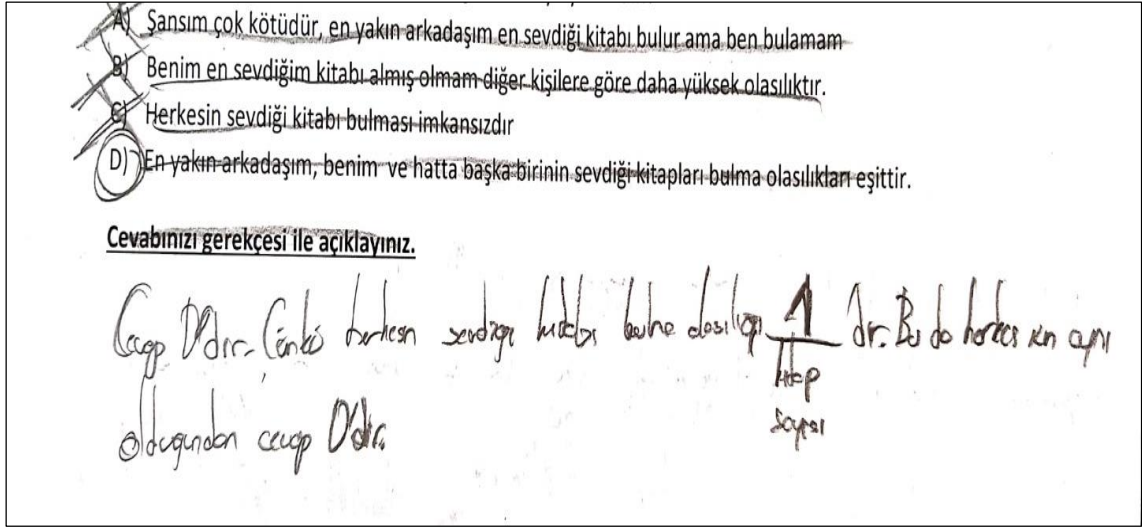 A) Şansım çok kötüdür, en yakın arkadaşım en sevdiği kitabı bulur ama ben bulamam
B) Benim en sevdiğim kitabı almış olmam diğer kişilere göre daha yüksek olasılıktır.
C) Herkesin sevdiği kitabı bulması imkansızdır
D) En yakın arkadaşım, benim ve hatta başka birinin sevdiği kitapları bulma olasılıkları eşittir.
Cevabınızı gerekçesi ile açıklayınız.
Cevap D'dir. Çünkü herkesin sevdiği kitabı bulma olasılığı 1 dir. Bu da herkes için aynı
kitap
sayısı
olduğundan cevap D'dir.